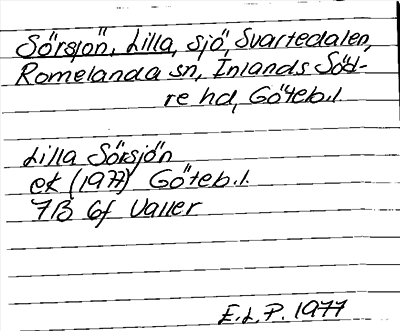 Sörsjön, Lilla, sjö, Svartedalen,
Romelanda sn, Inlands Söd-
re hd, Göteb.l.
Lilla Sörsjön
ek (1977) Göteb.l.
7B 6f Valler
E.L.P. 1977